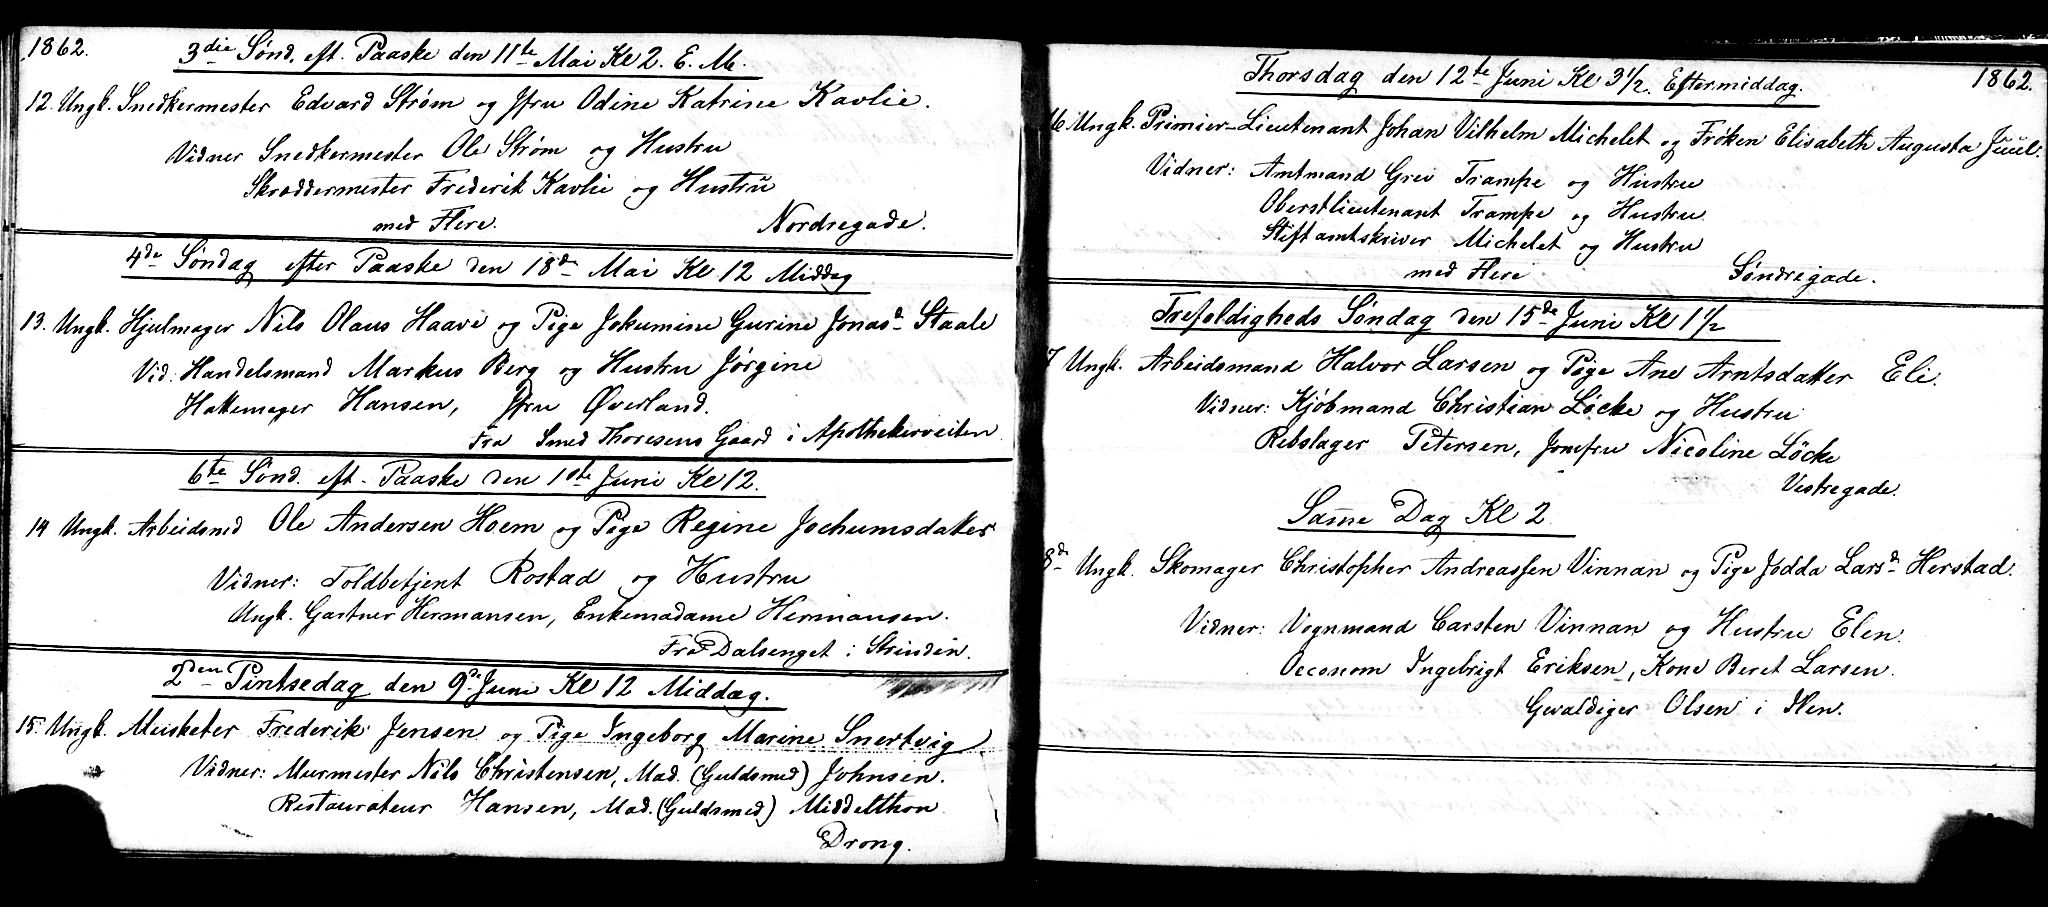 1862.
3die Sønd. eft. Paaske den 11te Mai Kl 2. E. M.
12. Ungk. Snedkermester Edvard Strøm og Jfru Odine Katrine Kavlie.
Vidner Snedkermester Ole Strøm og Hustru
Skræddermester Frederik Kavlie og Hustru
med Flere. Nordregade.
4de Søndag efter Paaske den 18de Mai Kl 12 Middag
13. Ungk. Hjulmager Nils Olaus Haave og Pige Jokumine Gurine Jonasd. Staale
Vid: Handelsmand Markus Berg og Hustru Jørgine
Hattemager Hansen, Jfru Øverland.
Fra Smed Thoresens Gaard i Apothekerveiten
6te Sønd. eft. Paaske den 1ste Juni Kl 12.
14 Ungk. Arbeidsmd Ole Andersen Hoem og Pige Regine Jochumsdatter
Vidner: Toldbetjent Rostad og Hustru
Ungk. Gartner Hermansen, Enkemadame Hermansen.
Fra Dalsenget i Strinden.
2den Pintsedag den 9de Juni Kl 12 Middag.
15. Ungk. Musketer Frederik Jensen og Pige Ingeborg Marine Snertvig.
Vidner: Murmester Nils Christensen, Mad. (Guldsmed) Johnsen.
Restaurateur Hansen, Mad. (Guldsmed) Middelthon
Drong.
Thorsdag den 12te Juni Kl 3 1/2. Eftermiddag. 1862.
16. Ungk. Primier-Lieutenant Johan Vilhelm Michelet og Frøken Elisabeth Augusta Juul.
Vidner: Amtmand Grev Trampe og Hustru
Oberstlieutenant Trampe og Hustru
Stiftamtskriver Michelet og Hustru
med Flere Søndregade.
Trefoldigheds Søndag den 15de Juni Kl 1 1/2
7 Ungk. Arbeidsmand Halvor Larsen og Pige Ane Arntsdatter Eli.
Vidner: Kjøbmand Christian Løcke og Hustru
Rebslager Petersen, Jomfru Nicoline Løcke
Vestregade.
Samme Dag Kl 2
8de Ungk. Skomager Christopher Andreassen Vinnan og Pige Jødda Larsd. Herstad.
Vidner: Vognmand Carsten Vinnan og Hustru Elen.
Oeconom Ingebrigt Eriksen, Kone Beret Larsen.
Gevaldiger Olsen i Ilen.